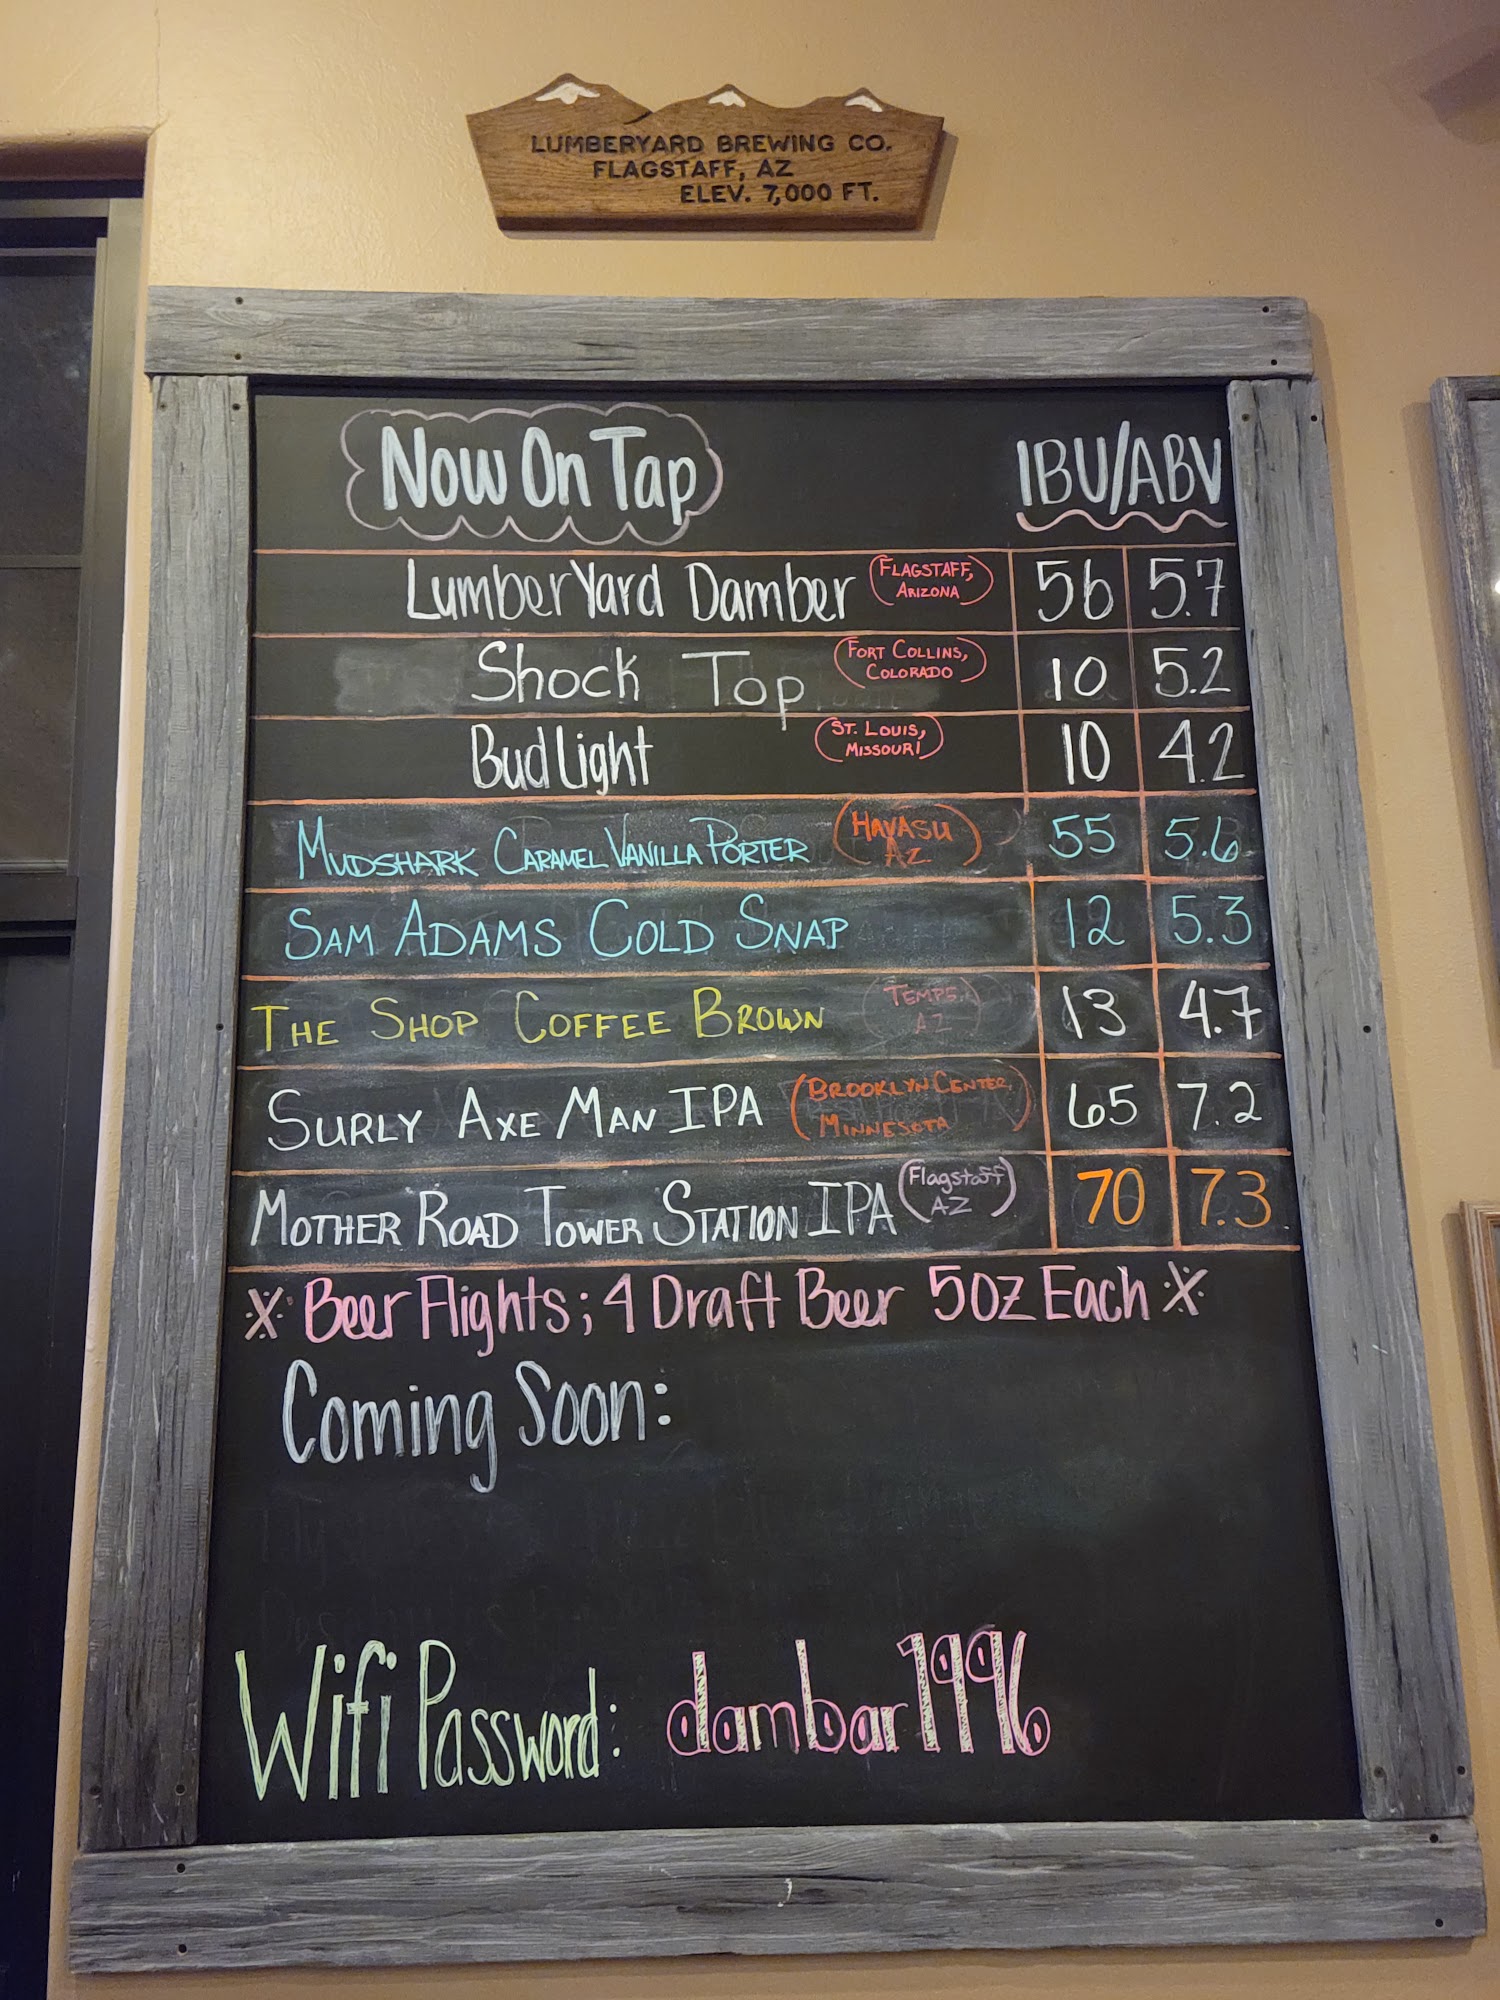 LUMBERYARD BREWING CO.
FLAGSTAFF, AZ
ELEV. 7,000 FT.
Now On Tap IBU/ABV
LumberYard Damber (FLAGSTAFF, ARIZONA) 56 5.7
Shock Top (FORT COLLINS, COLORADO) 10 5.2
Bud Light (ST. LOUIS, MISSOURI) 10 4.2
MUDSHARK CARAMEL VANILLA PORTER (HAVASU AZ) 55 5.6
SAM ADAMS COLD SNAP 12 5.3
THE SHOP COFFEE BROWN (TEMPE, AZ) 13 4.7
SURLY AXE MAN IPA (BROOKLYN CENTER, MINNESOTA) 65 7.2
MOTHER ROAD TOWER STATION IPA (Flagstaff AZ) 70 7.3
※ Beer Flights; 4 Draft Beer 5oz Each ※
Coming Soon:
Wifi Password: dambar1996